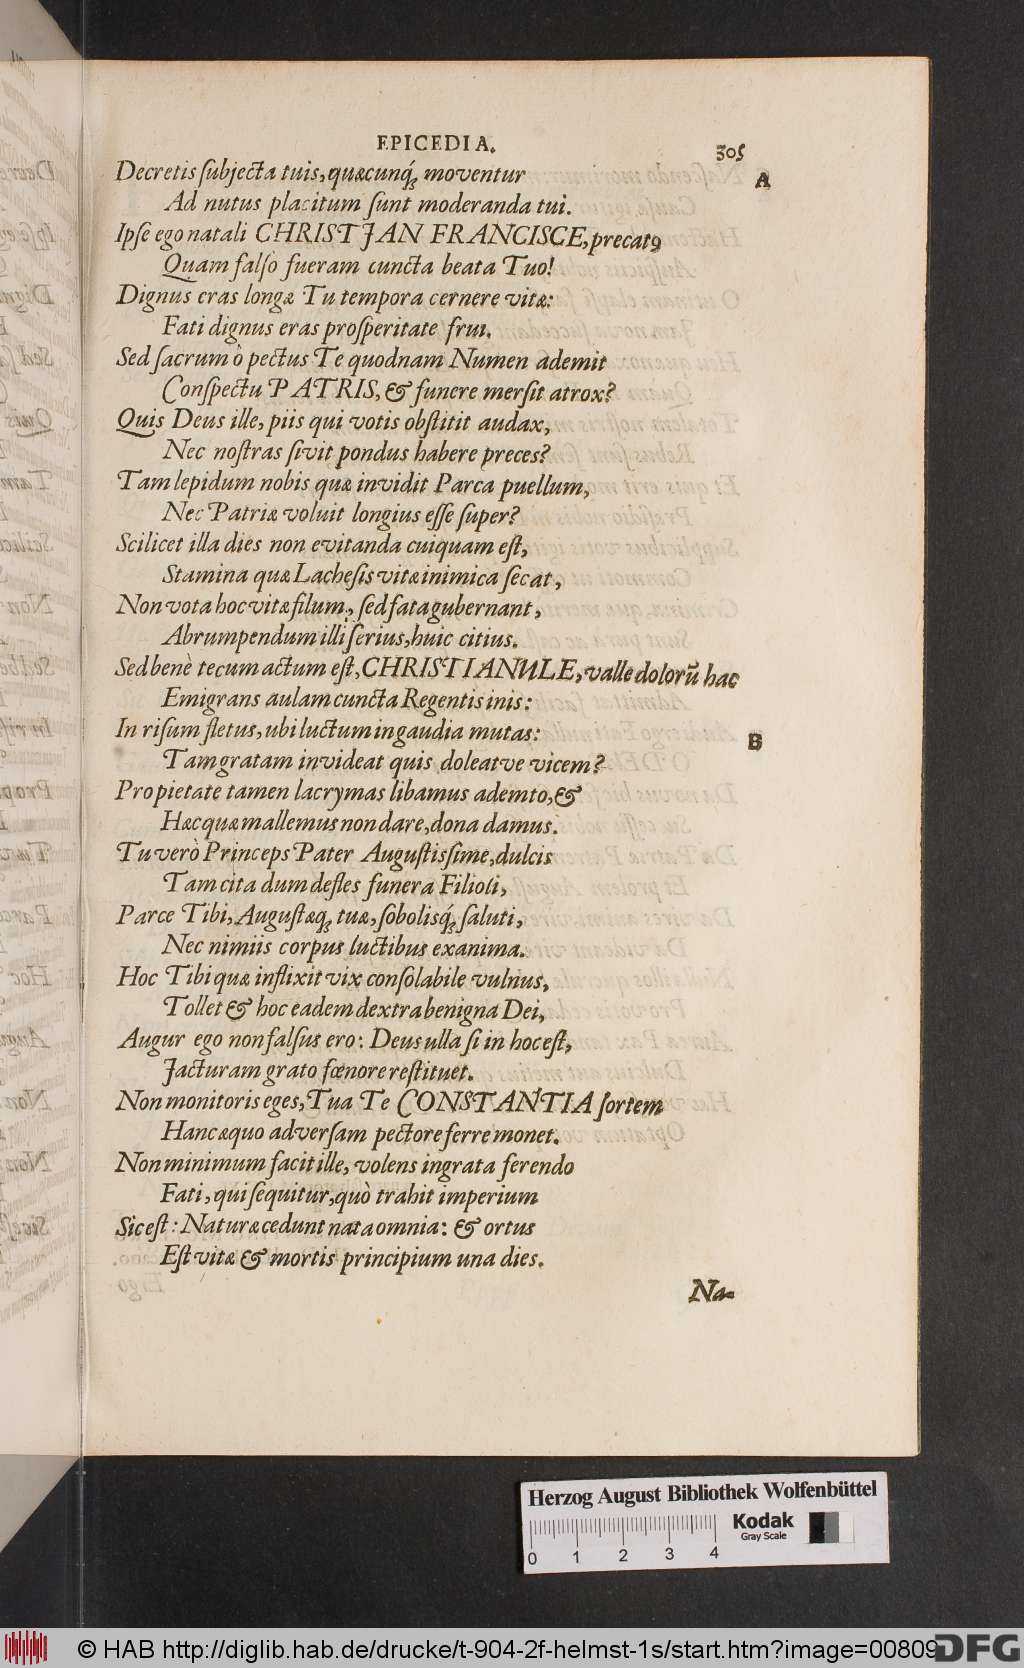 EPICEDIA. 305
Decretis ſubjecta tuis, quæcunq́; moventur
A
Ad nutus placitum ſunt moderanda tui.
Ipſe ego natali CHRISTJAN FRANCISCE, precatꝰ
Quam falſo fueram cuncta beata Tuo!
Dignus eras longæ Tu tempora cernere vitæ:
Fati dignus eras proſperitate frui.
Sed ſacrum ò pectus Te quodnam Numen ademit
Conſpectu PATRIS, & funere merſit atrox?
Quis Deus ille, piis qui votis obſtitit audax,
Nec noſtras ſivit pondus habere preces?
Tam lepidum nobis quæ invidit Parca puellum,
Nec Patriæ voluit longius eſſe ſuper?
Scilicet illa dies non evitanda cuiquam eſt,
Stamina quæ Lacheſis vitæ inimica ſecat,
Non vota hoc vitæ filum, ſed fata gubernant,
Abrumpendum illi ſerius, huic citius.
Sed benè tecum actum eſt, CHRISTIANULE, valle dolorū hac
Emigrans aulam cuncta Regentis inis:
In riſum fletus, ubi luctum in gaudia mutas:
B
Tam gratam invideat quis doleatve vicem?
Pro pietate tamen lacrymas libamus ademto, &
Hæc quæ mallemus non dare, dona damus.
Tu verò Princeps Pater Auguſtisſime, dulcis
Tam cita dum defles funera Filioli,
Parce Tibi, Auguſtæq; tuæ, ſobolisq́; ſaluti,
Nec nimiis corpus luctibus exanima.
Hoc Tibi quæ inflixit vix conſolabile vulnus,
Tollet & hoc eadem dextra benigna Dei,
Augur ego non falſus ero: Deus ulla ſi in hoc eſt,
Jacturam grato fœnore reſtituet.
Non monitoris eges, Tua Te CONSTANTIA ſortem
Hanc æquo adverſam pectore ferre monet.
Non minimum facit ille, volens ingrata ferendo
Fati, qui ſequitur, quò trahit imperium
Sic eſt: Naturæ cedunt nata omnia: & ortus
Eſt vitæ & mortis principium una dies.
Na-
Herzog August Bibliothek Wolfenbüttel
Kodak
Gray Scale
0 1 2 3 4
© HAB http://diglib.hab.de/drucke/t-904-2f-helmst-1s/start.htm?image=00809
DFG